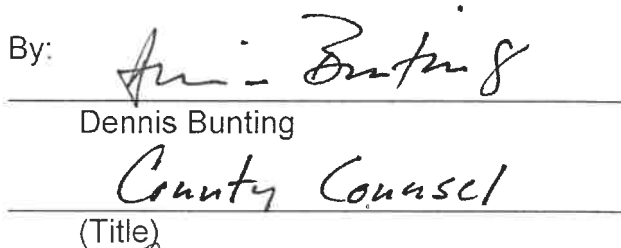 By: Dennis Bunting
Dennis Bunting
County Counsel
(Title)